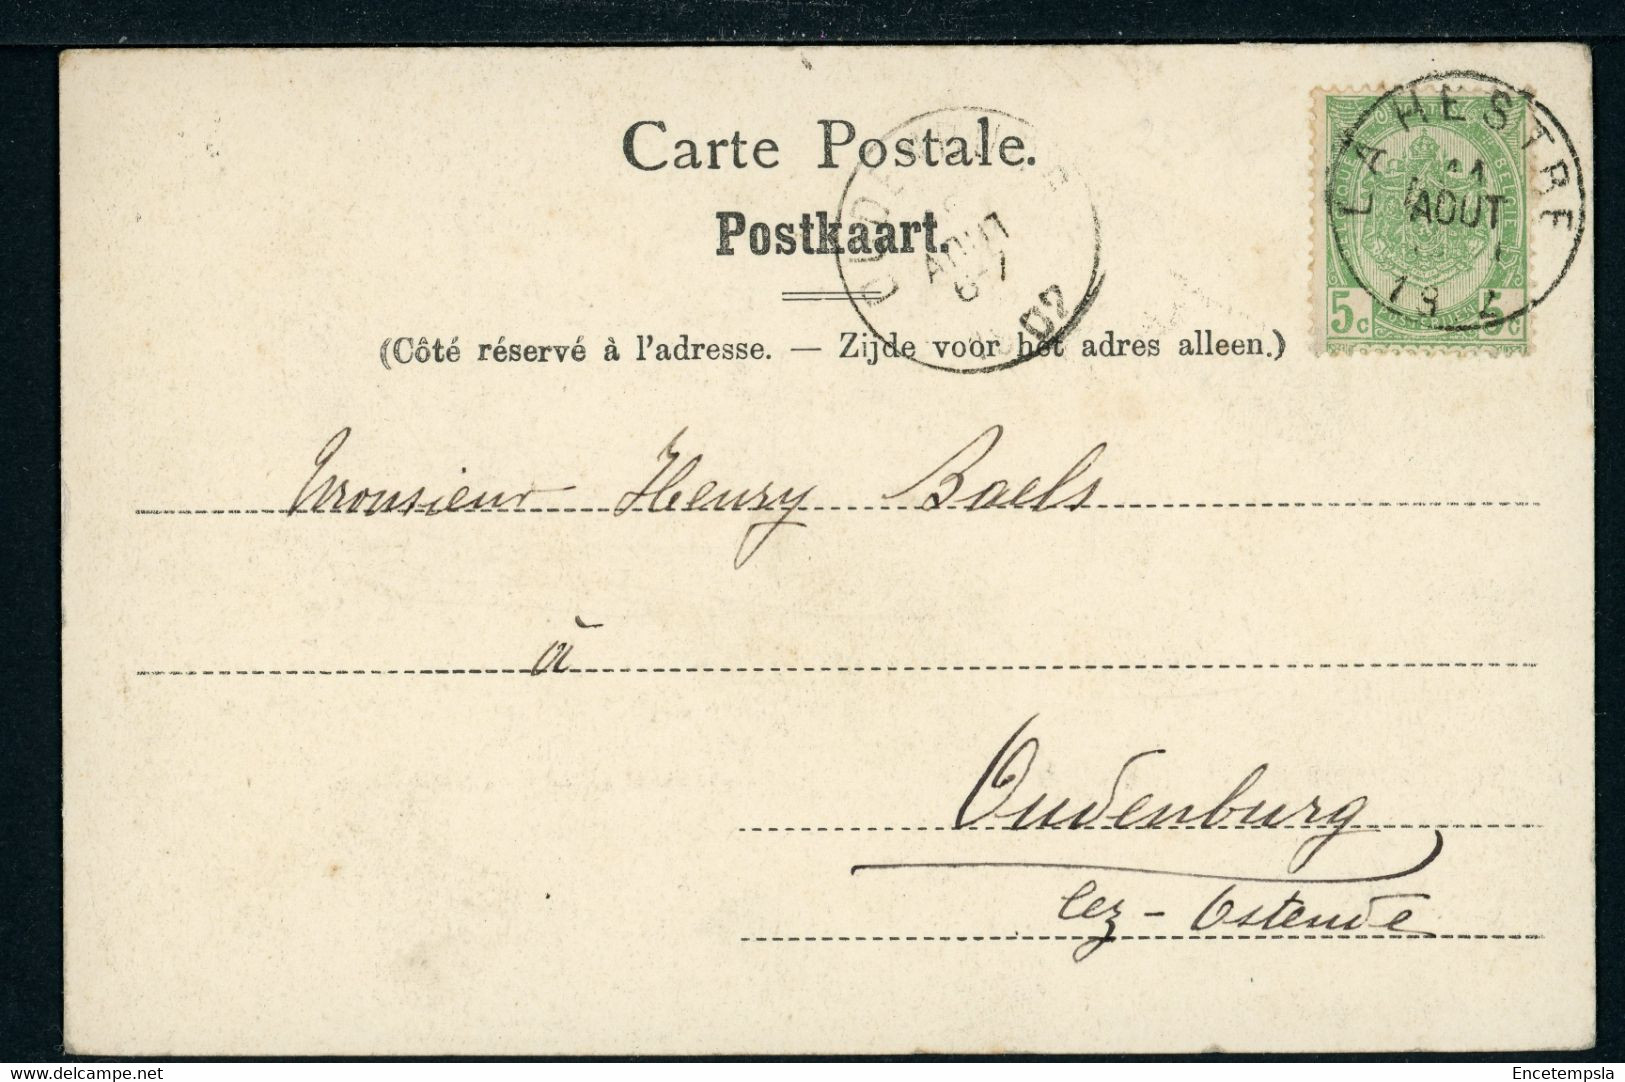 Carte Postale.
Postkaart.
(Côté réservé à l'adresse. — Zijde voor het adres alleen.)
LA HESTRE
11
AOUT
5c 5c
AOUT
6-7
02
Monsieur Henry Baels
à
Oudenburg
lez-Ostende
delcampe.net
Encetempsla